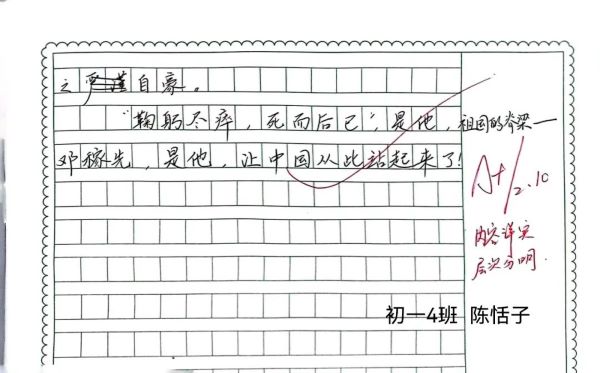 之严谨自豪。
“鞠躬尽瘁，死而后已”，是他，祖国的脊梁——
邓稼先，是他，让中国从此站起来了！
A+/2.10
内容详实
层次分明.
初一4班 陈恬子